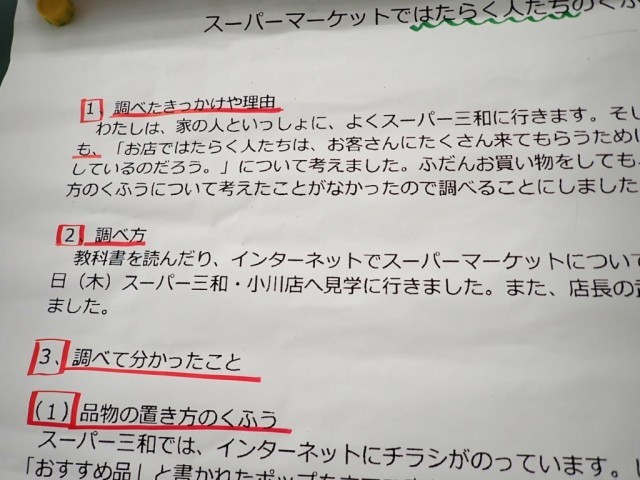 スーパーマーケットではたらく人たちのくふ
1、調べたきっかけや理由
わたしは、家の人といっしょに、よくスーパー三和に行きます。そし
も、「お店ではたらく人たちは、お客さんにたくさん来てもらうために
しているのだろう。」について考えました。ふだんお買い物をしても、
方のくふうについて考えたことがなかったので調べることにしました
2、調べ方
教科書を読んだり、インターネットでスーパーマーケットについて
日(木)スーパー三和・小川店へ見学に行きました。また、店長の
ました。
3、調べて分かったこと
(1)品物の置き方のくふう
スーパー三和では、インターネットにチラシがのっています。
「おすすめ品」と書かれたポップを